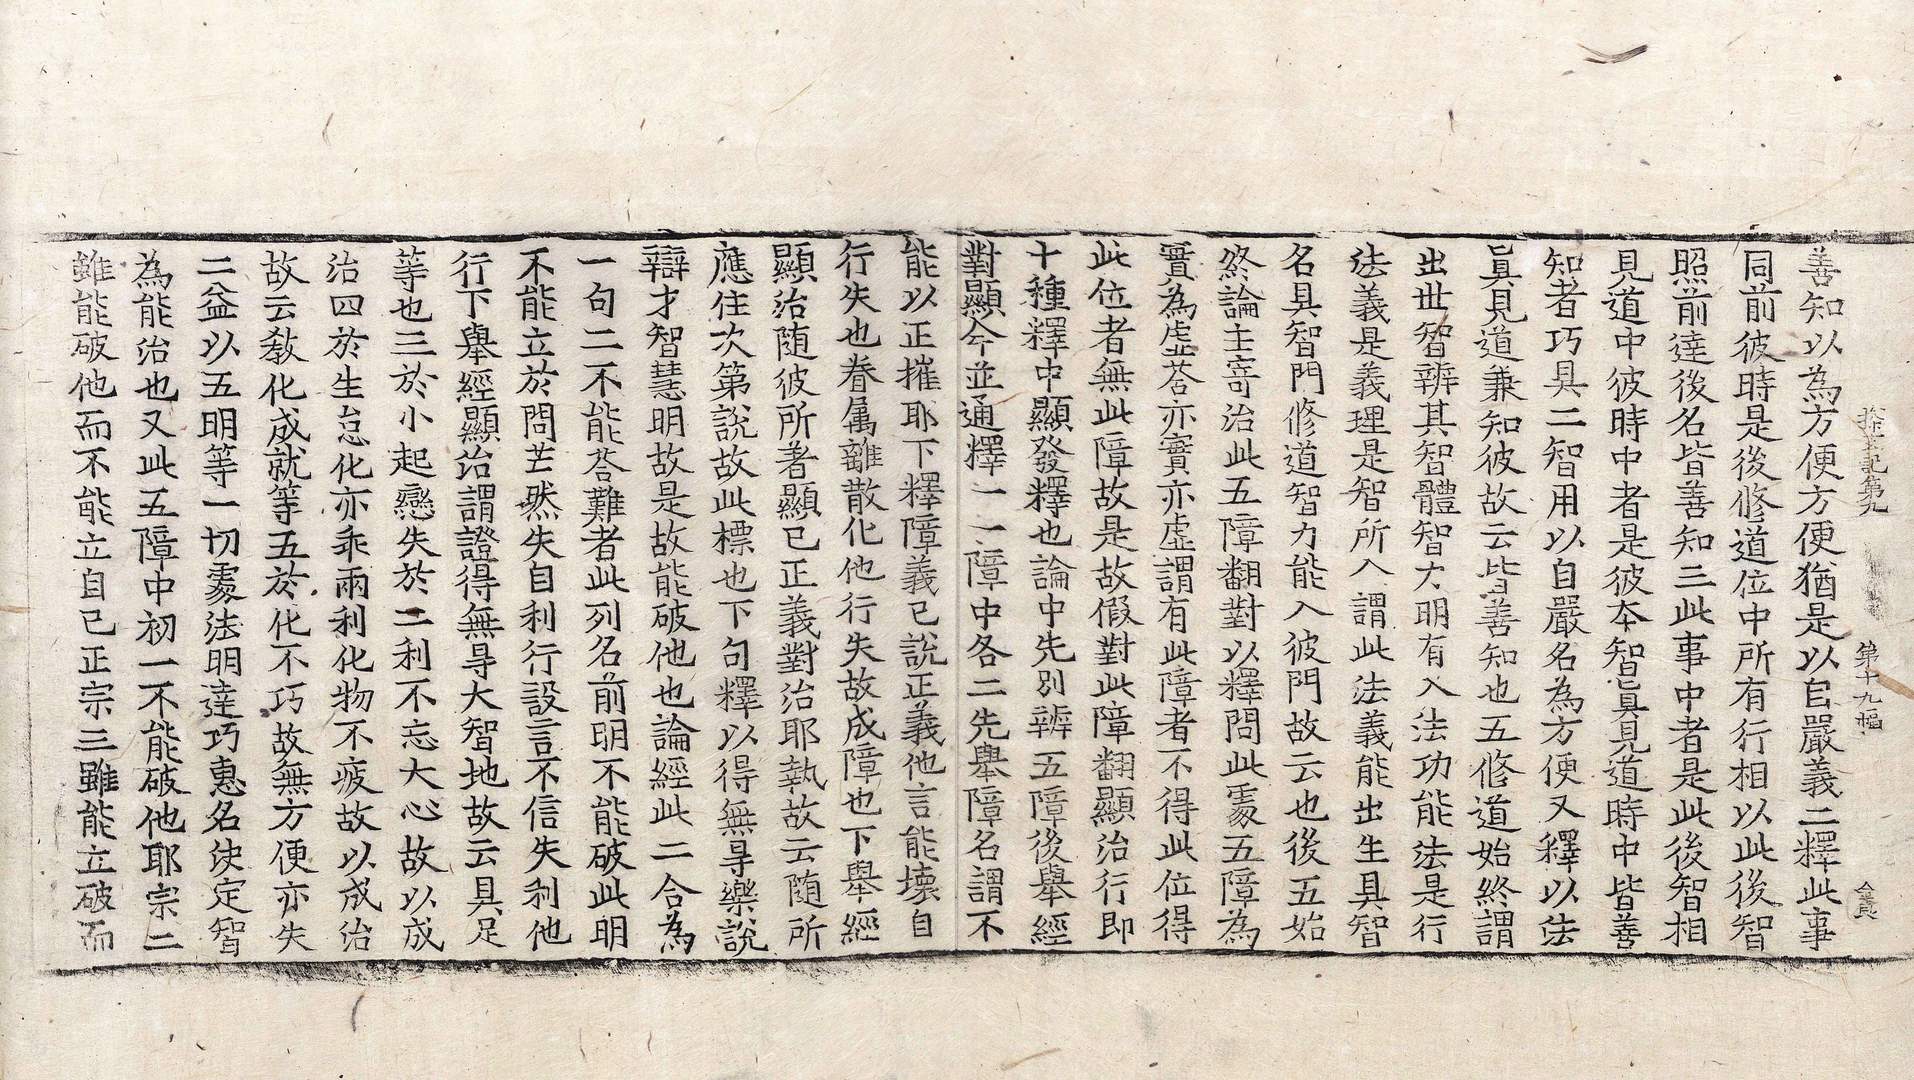 探玄記第九 第十九幅
善知以為方便方便猶是以自嚴義二釋此事
同前彼時是後修道位中所有行相以此後智
照前達後名皆善知三此事中者是此後智相
見道中彼時中者是彼本智真見道時中皆善
知者巧具二智用以自嚴名為方便又釋以法
真見道兼知彼故云皆善知也五修道始終謂
出世智辨其智體智大明有入法功能法是行
法義是義理是智所入謂此法義能出生具智
名具智門修道智力能入彼門故云也後五始
終論主寄治此五障翻對以釋問此䖏五障為
實為虛荅亦實亦虛謂有此障者不得此位得
此位者無此障故是故假對此障翻顯治行即
十種釋中顯發釋也論中先別辨五障後舉經
對顯今並通釋一一障中各二先舉障名謂不
能以正摧耶下釋障義已說正義他言能壞自
行失也眷属離散化他行失故成障也下舉經
顯治随彼所著顯已正義對治耶執故云随所
應住次第說故此標也下句釋以得無㝵樂說
辯才智慧明故是故能破他也論經此二合為
一句二不能荅難者此列名前明不能破此明
不能立於問芒然失自利行設言不信失利他
行下舉經顯治謂證得無㝵大智地故云具足
等也三於小起戀失於二利不忘大心故以成
治四於生怠化亦乖兩利化物不疲故以成治
故云教化成就等五於化不巧故無方便亦失
二益以五明等一切䖏法明達巧惠名決定智
為能治也又此五障中初一不能破他耶宗二
雖能破他而不能立自己正宗三雖能立破而